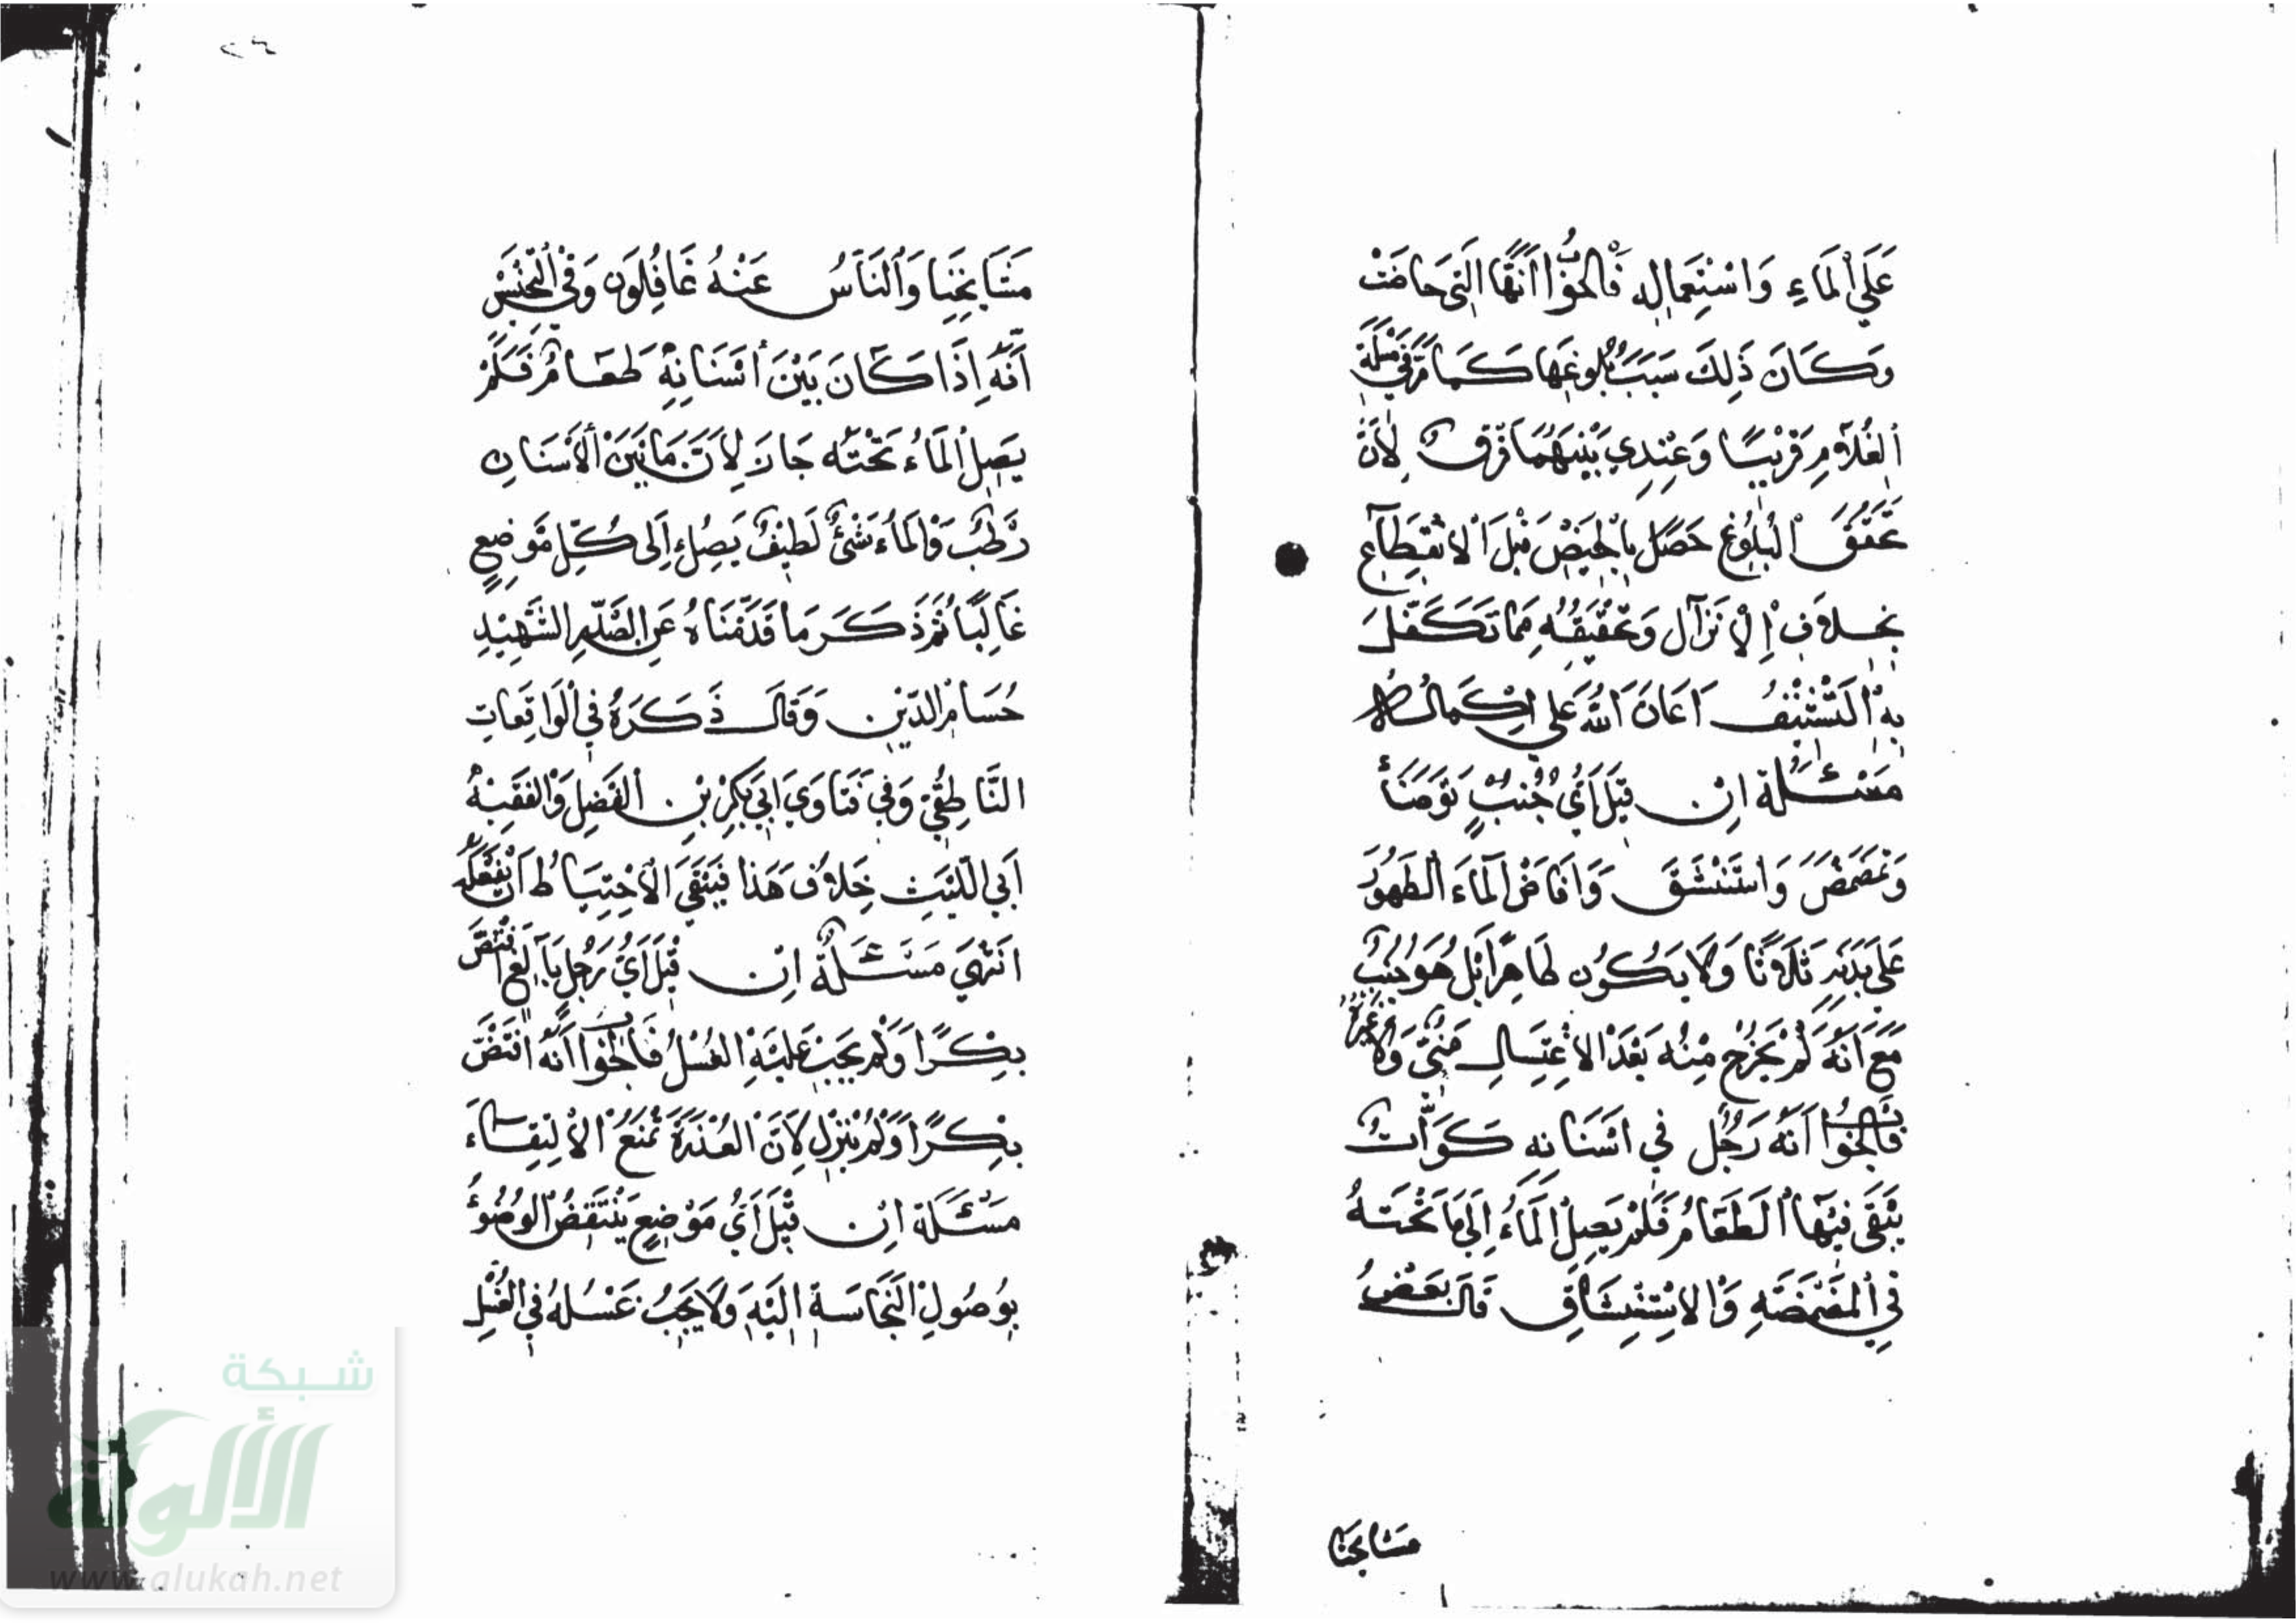 عَلَى الْمَاءِ وَاسْتِعْمَالِهِ فَالْجَوَابُ أَنَّهَا الَّتِي حَاضَتْ
وَكَانَ ذَلِكَ سَبَبَ بُلُوغِهَا كَمَا مَرَّ فِي مَسْئَلَةِ
الْغُلَامِ قَرِيبًا وَعِنْدِي بَيْنَهُمَا فَرْقٌ لِأَنَّ
تَحَقُّقَ الْبُلُوغِ حَصَلَ بِالْحَيْضِ قَبْلَ الْاِنْقِطَاعِ
بِخِلَافِ الْإِنْزَالِ وَتَحْقِيقُهُ مِمَّا تَكَفَّلَ
بِهِ التَّشْنِيفُ أَعَانَ اللّٰهُ عَلَى إِكْمَالِهِ
مَسْئَلَةٌ اِنْ قِيلَ أَيُّ جُنُبٍ تَوَضَّأَ
وَتَمَضْمَضَ وَاسْتَنْشَقَ وَأَفَاضَ الْمَاءَ الطَّهُورَ
عَلَى بَدَنِهِ ثَلَاثًا وَلَا يَكُونُ طَاهِرًا بَلْ هُوَ جُنُبٌ
مَعَ أَنَّهُ لَمْ يَخْرُجْ مِنْهُ بَعْدَ الْاِغْتِسَالِ مَنِيٌّ وَلَا غَيْرُهُ
فَالْجَوَابُ أَنَّهُ رَجُلٌ فِي أَسْنَانِهِ كَوَّاتٌ
يَبْقَى فِيهَا الطَّعَامُ فَلَمْ يَصِلِ الْمَاءُ إِلَى مَا تَحْتَهُ
فِي الْمَضْمَضَةِ وَالْاِسْتِنْشَاقِ قَالَ بَعْضُ
مشايخنا
مَشَايِخِنَا وَالنَّاسُ عَنْهُ غَافِلُونَ وَفِي التَّجْنِيسِ
أَنَّهُ إِذَا كَانَ بَيْنَ أَسْنَانِهِ طَعَامٌ فَلَمْ
يَصِلِ الْمَاءُ تَحْتَهُ جَازَ لِأَنَّ مَا بَيْنَ الْأَسْنَانِ
رَطْبٌ وَالْمَاءُ شَيْءٌ لَطِيفٌ يَصِلُ إِلَى كُلِّ مَوْضِعٍ
غَالِبًا ثُمَّ ذَكَرَ مَا قَدَّمْنَاهُ عَنِ الصَّدْرِ الشَّهِيدِ
حُسَامِ الدِّينِ وَقَالَ ذَكَرَهُ فِي الْوَاقِعَاتِ
النَّاطِفِيُّ وَفِي فَتَاوَي أَبِي بَكْرِ بْنِ الْفَضْلِ وَالْفَقِيهِ
أَبِي اللَّيْثِ خِلَافُ هَذَا فَيَبْقَى الْاِحْتِيَاطُ أَنْ يَفْعَلَهُ
انْتَهَى مَسْئَلَةٌ اِنْ قِيلَ أَيُّ رَجُلٍ بَالِغٍ افْتَضَّ
بِكْرًا وَلَمْ يَجِبْ عَلَيْهِ الْغُسْلُ فَالْجَوَابُ أَنَّهُ افْتَضَّ
بِكْرًا وَلَمْ يُنْزِلْ لِأَنَّ الْعُذْرَةَ تَمْنَعُ الْاِلْتِقَاءَ
مَسْئَلَةٌ اِنْ قِيلَ أَيُّ مَوْضِعٍ يَنْتَقِضُ الْوُضُوءُ
بِوُصُولِ النَّجَاسَةِ إِلَيْهِ وَلَا يَجِبُ غَسْلُهُ فِي الْغُسْلِ
شبكة
الألوكة
www.alukah.net